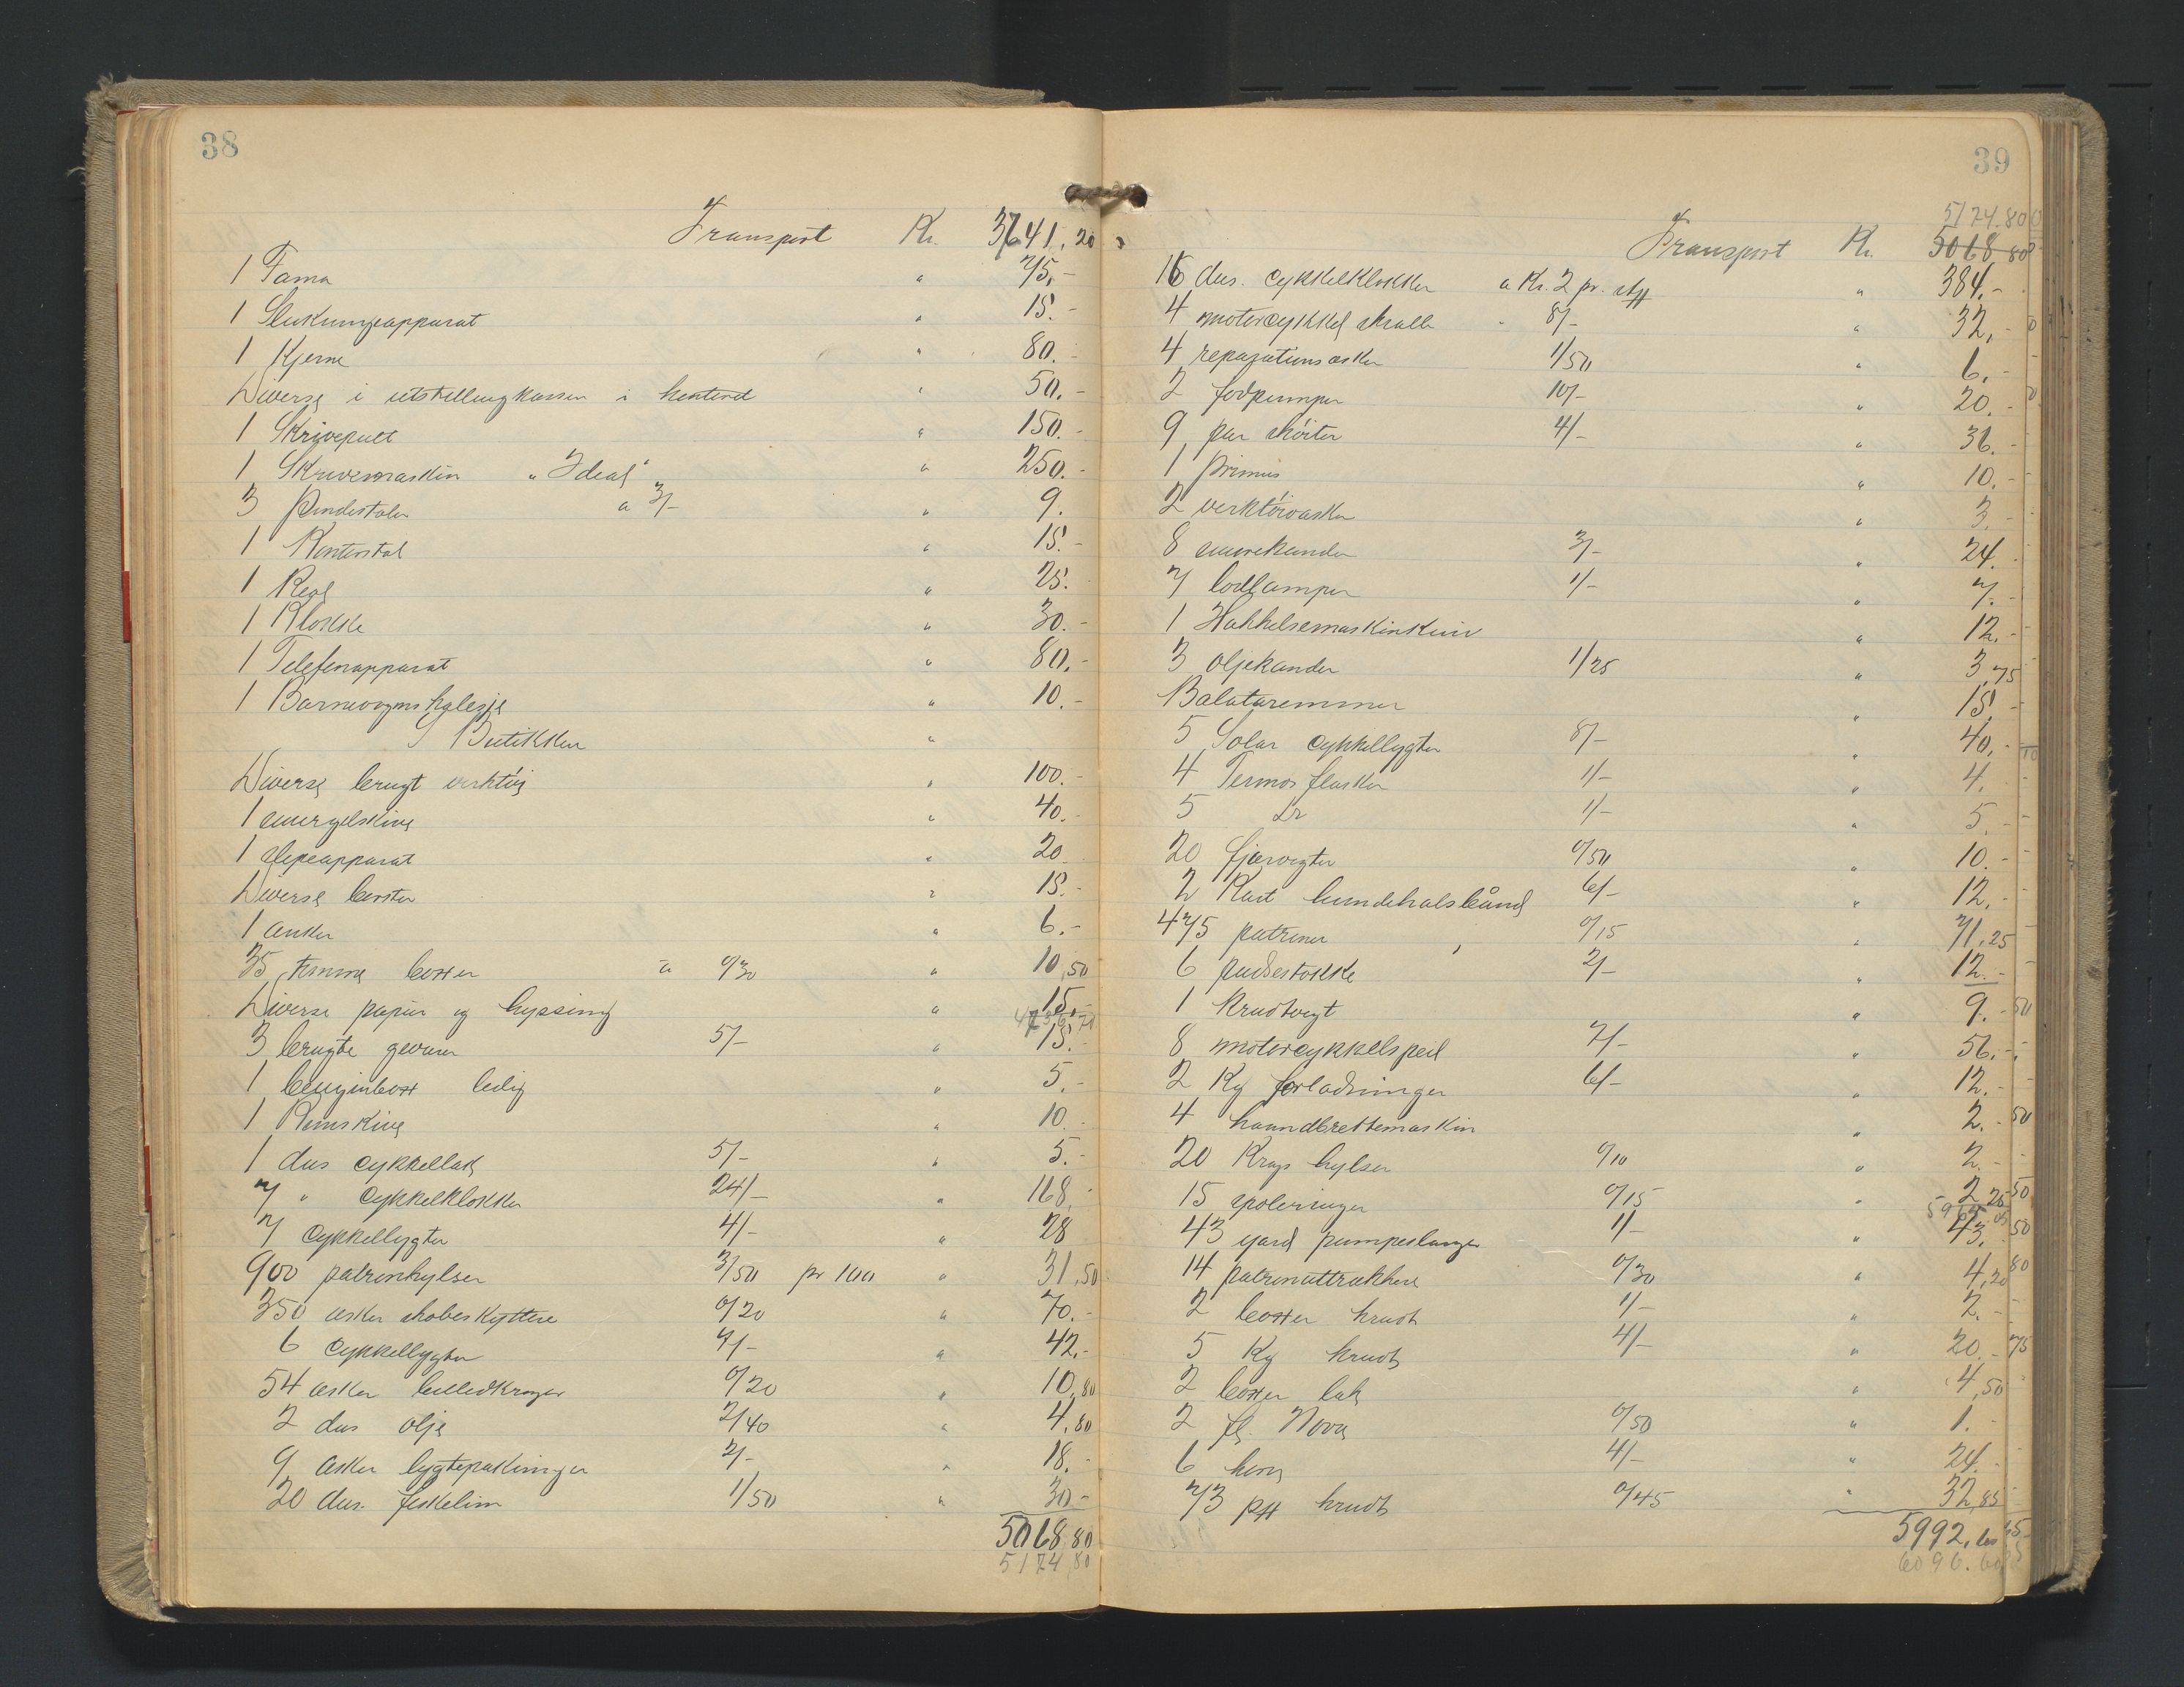 38
Transport Kr. 3641,20
1 Fama " 75,-
1 Slukningsapparat " 15.-
1 Kjerne " 80.-
Diverse i utstillingkassen i kontoret " 50.-
1 Skrivepult " 150.-
1 Skrivemaskin "Ideal" " 250.-
3 pindestoler a 3/- " 9.
1 Kontorstol " 15.-
1 Reol " 25.
1 Klokke " 30.-
1 Telefonapparat " 80,-
1 Barnevogns kalesje " 10.-
I Butikken "
Diverse brugt verktøi " 100.-
1 smergelskive " 40.-
1 slipeapparat " 20
Diverse børster " 15.-
1 anker " 6.-
35 tomme boxer a 0/30 " 10,50
Diverse papir og hyssing " 15,-
3 brugte geværer 5/- " 15.-
1 bensinbox ledig " 5.-
1 Remskive " 10.-
1 dus cykkellak 5/- " 5.-
7 " cykkelklokker 24/- " 168,-
7 cykkellygter 4/- " 28
900 patronhylser 3/50 pr 100 " 31,50
350 æsker skobeskyttere 0/20 " 70.-
6 cykkellygter 7/- " 42.-
54 æsker billedkroger 0/20 " 10,80
2 dus olje 2/40 " 4,80
9 æsker lygtepakninger 2/- " 18.-
20 dus. fiskelim 1/50 " 30.-
5068,80
5174,80
39
5174.80
Transport Kr. 5068,80
16 dus. cykkelklokker a Kr. 2 pr. stk " 384.-
4 motorcykkel skralle - 8/- " 32,-
4 reparationsæsker 1/50 " 6.-
2 fodpumper 10/- " 20.-
9 par skøiter 4/- " 36.-
1 primus " 10.-
2 verktøivæsker " 3.-
8 smørekander 3/- " 24.
7 lodlamper 1/- " 7.-
1 Hakkelsemaskinkniv " 12.-
3 oljekander 1/25 " 3,75
Balataremmer " 15,-
5 Solar cykkellygter 8/- " 40,-
4 Termos flasker 1/- " 4.
5 Do 1/- " 5.-
20 fjærvegter 0/50 " 10.-
2 Kart hundehalsbånd 6/- " 12.-
475 patroner 0/15 " 71,25
6 pudsestokke 2/- " 12.-
1 Krudtvegt " 9.-
8 motorcykkelspeil 7/- " 56.-
2 Kg forladninger 6/- " 12.-
4 haandbrettemaskin " 2.-
20 Krags hylser 0/10 " 2.-
15 spoleringer 0/15 " 2,25
43 yard pumpeslanger 1/- " 43,
14 patronuttrækkere 0/30 " 4,20
2 boxer krudt 1/- " 2.-
5 Kg krudt 4/- " 20.-
2 boxer lak " 4,50
2 fl. Nova 0/50 " 1.-
6 horn 4/- " 24.-
73 pk krudt 0/45 " 32,85
5992,60
6096.60